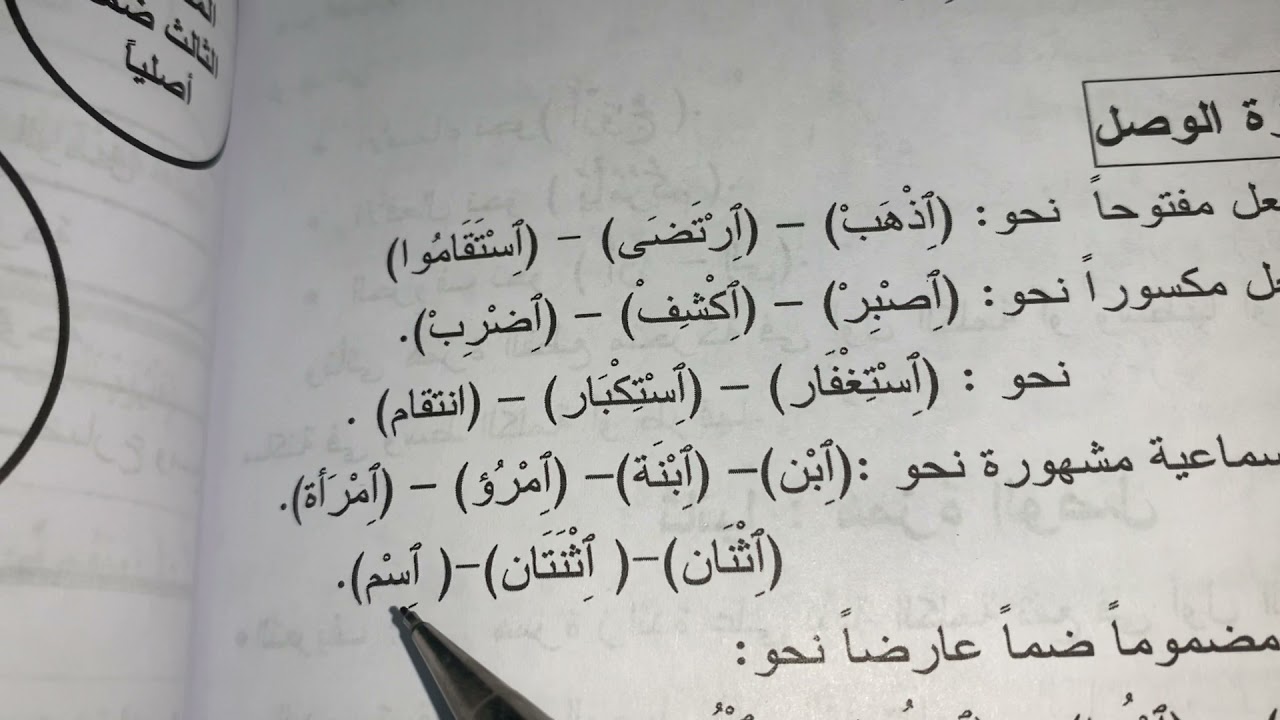 الثالث
أصلياً
الوصل
مفتوحاً نحو: (ٱِذْهَبْ) – (ٱِرْتَضَى) – (ٱِسْتَقَامُوا)
مكسوراً نحو: (ٱِصْبِرْ) – (ٱِكْشِفْ) – (ٱِضْرِبْ).
نحو : (ٱِسْتِغْفَار) – (ٱِسْتِكْبَار) – (انتقام) .
سماعية مشهورة نحو :(ٱِبْن)– (ٱِبْنَة)– (ٱِمْرُؤ) – (ٱِمْرَأة).
(ٱِثْنَان)–( ٱِثْنَتَان)–( ٱِسْم).
مضموماً ضماً عارضاً نحو: